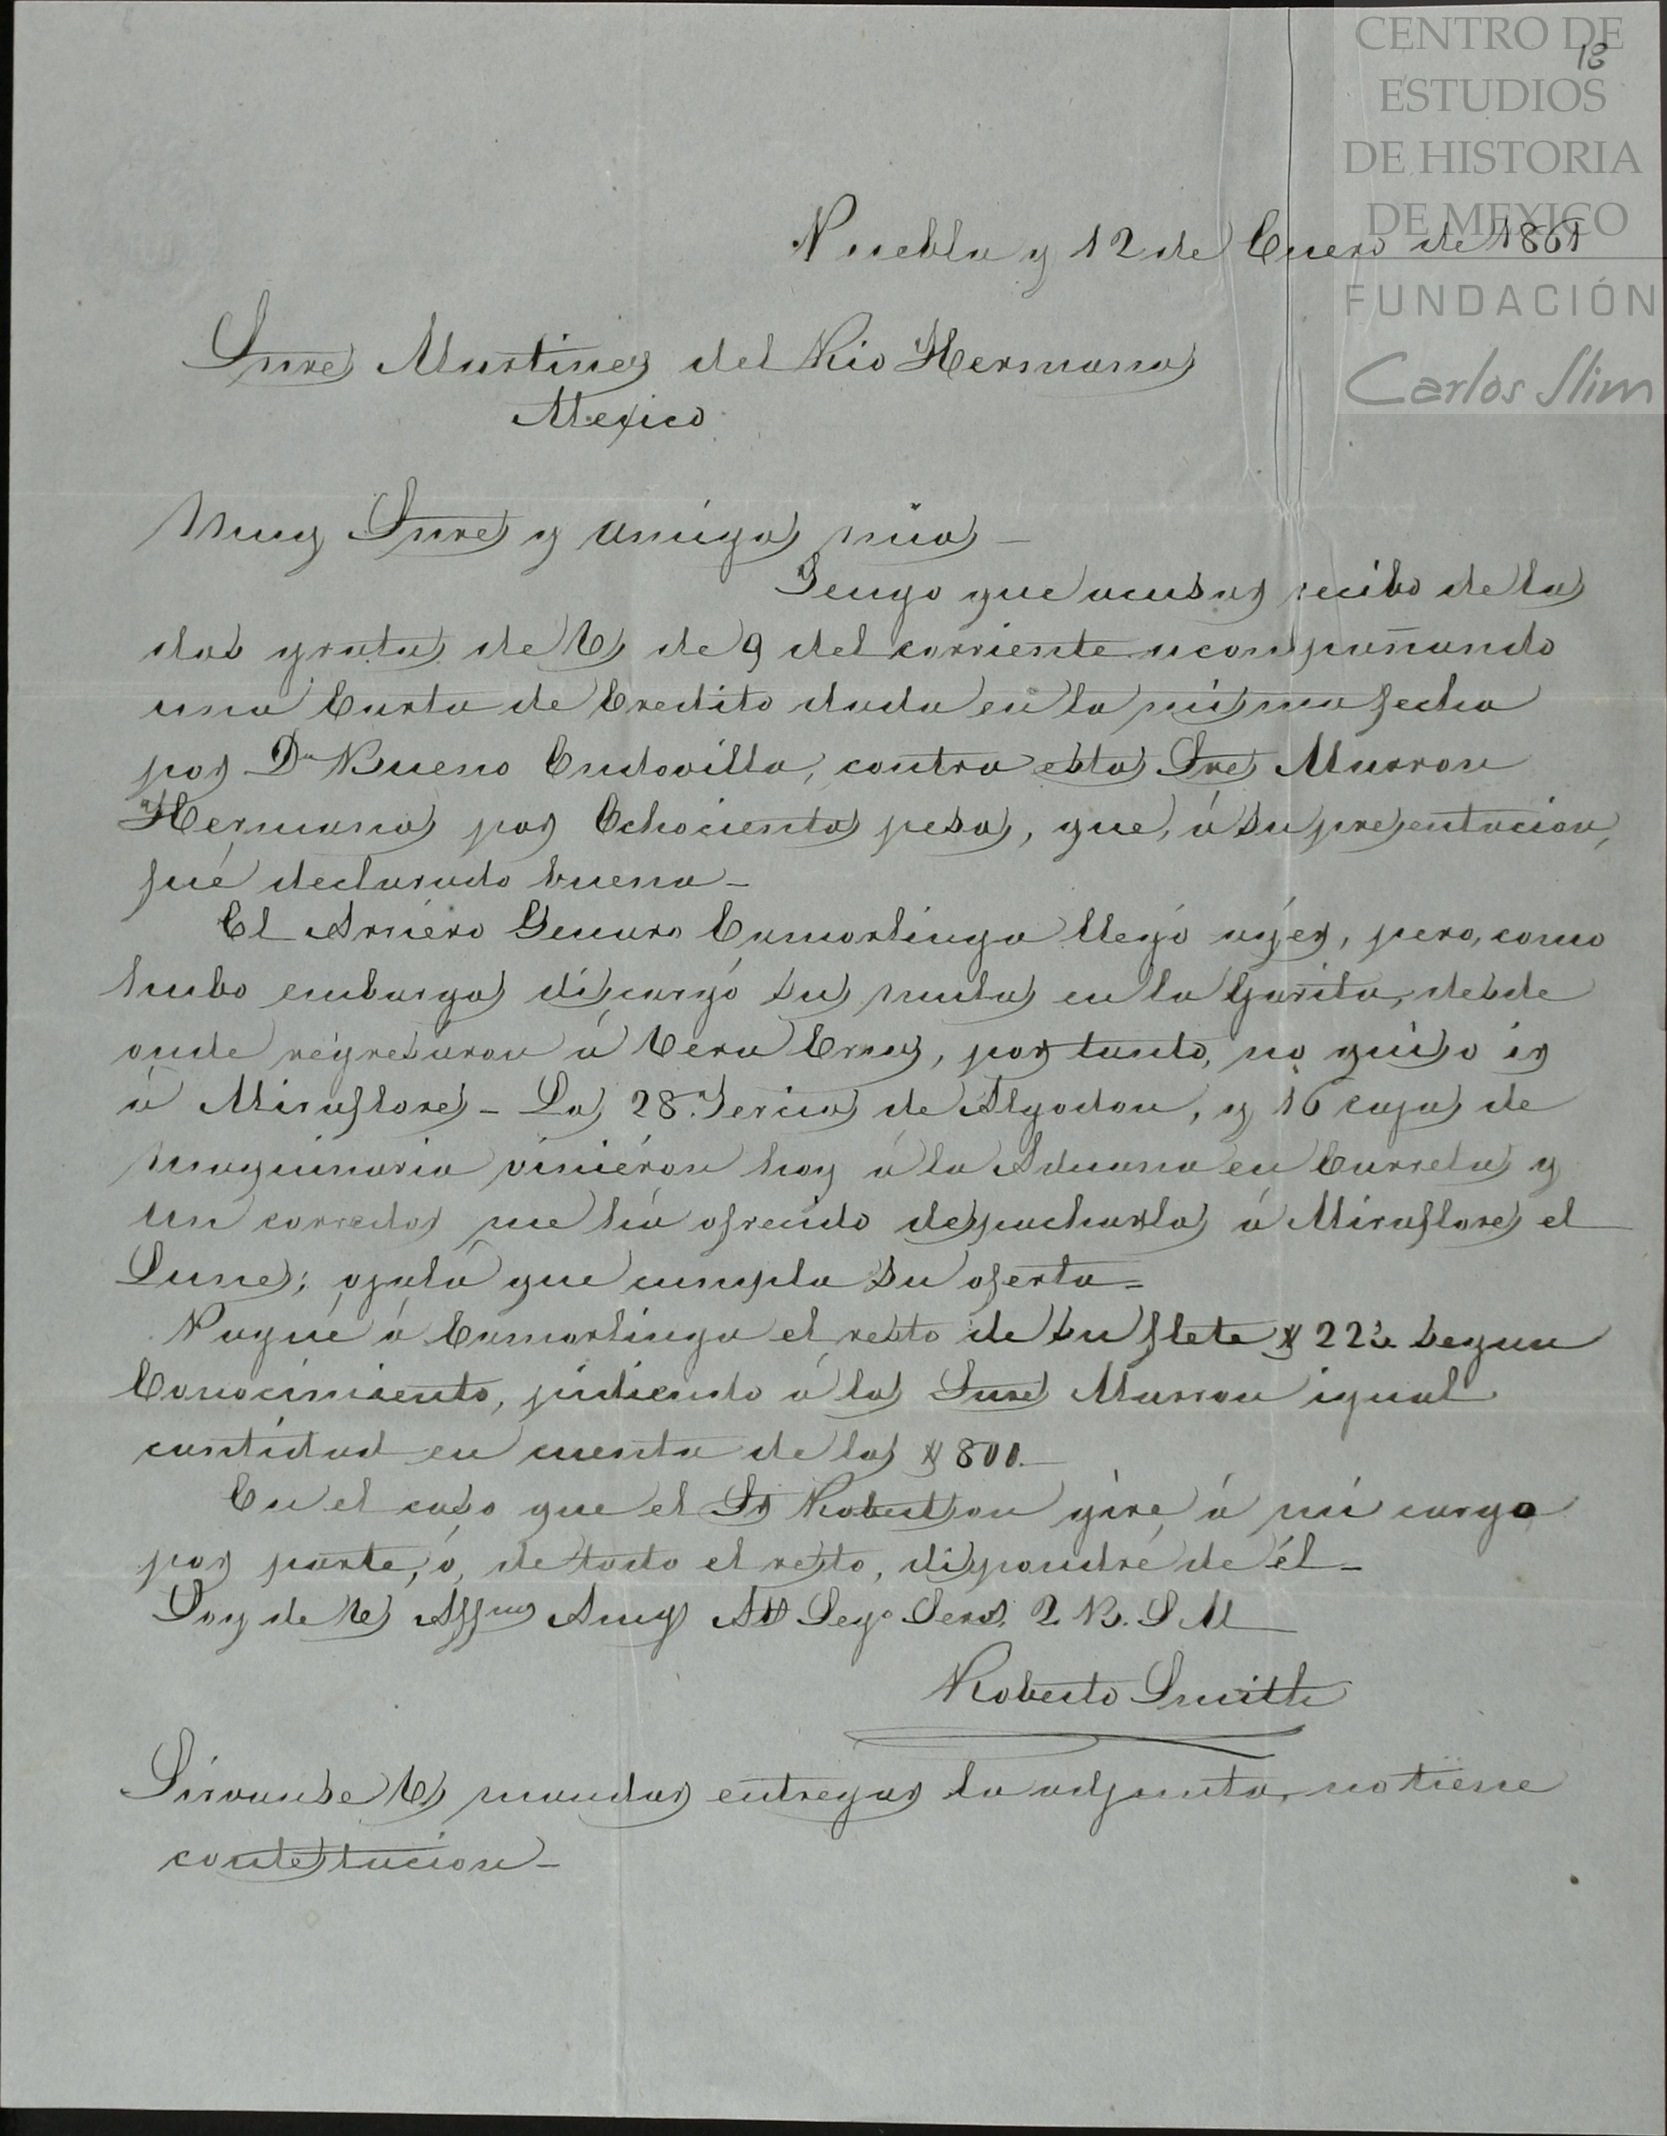 CENTRO DE
ESTUDIOS
DE HISTORIA
DE MEXICO
FUNDACIÓN
Carlos Slim
18
Puebla y 12 de Enero de 1861
Snres Martinez del Rio Hermanos
Mexico
Muy Snres y amigos mios –
Tengo que acusar recibo de las
dos gratas de Vs de 9 del corriente acompañando
una Carta de Credito dada en la misma fecha
por Dn Bueno Endovilla, contra estos Sres Marron
Hermanos por Ochocientos pesos, que, á su presentacion,
fué declarado buena –
El Arriéro Genaro Camorlinga llegó ayer, pero, como
hubo embargos discargó sus mulas en la Garita, desde
onde régresaron á Vera Cruz, por tanto, no quiso ir
á Miraflores – Los 28 Tercios de Algodon, y 16 cajas de
maquinaria viniéron hoy á la Aduana en Carretas y
un corredor me há ofrecido despacharlos á Miraflores el
Lunes; ojalá que cumpla su oferta =
Pagué á Camorlinga el resto de su flete $ 22 segun
Conocimiento, pidiendo á los Snres Marron igual
cantidad en cuenta de los $ 800. –
En el caso que el Sr Robertson gire á mi cargo
por parte, ó, de todo el resto, dispondré de él –
Soy de Vs Affmo Amigo Atto Sego Servr Q. B. S M
Roberto Smith
Sirvanse Vs mandar entregar la adjunta, no tiene
contestacion –